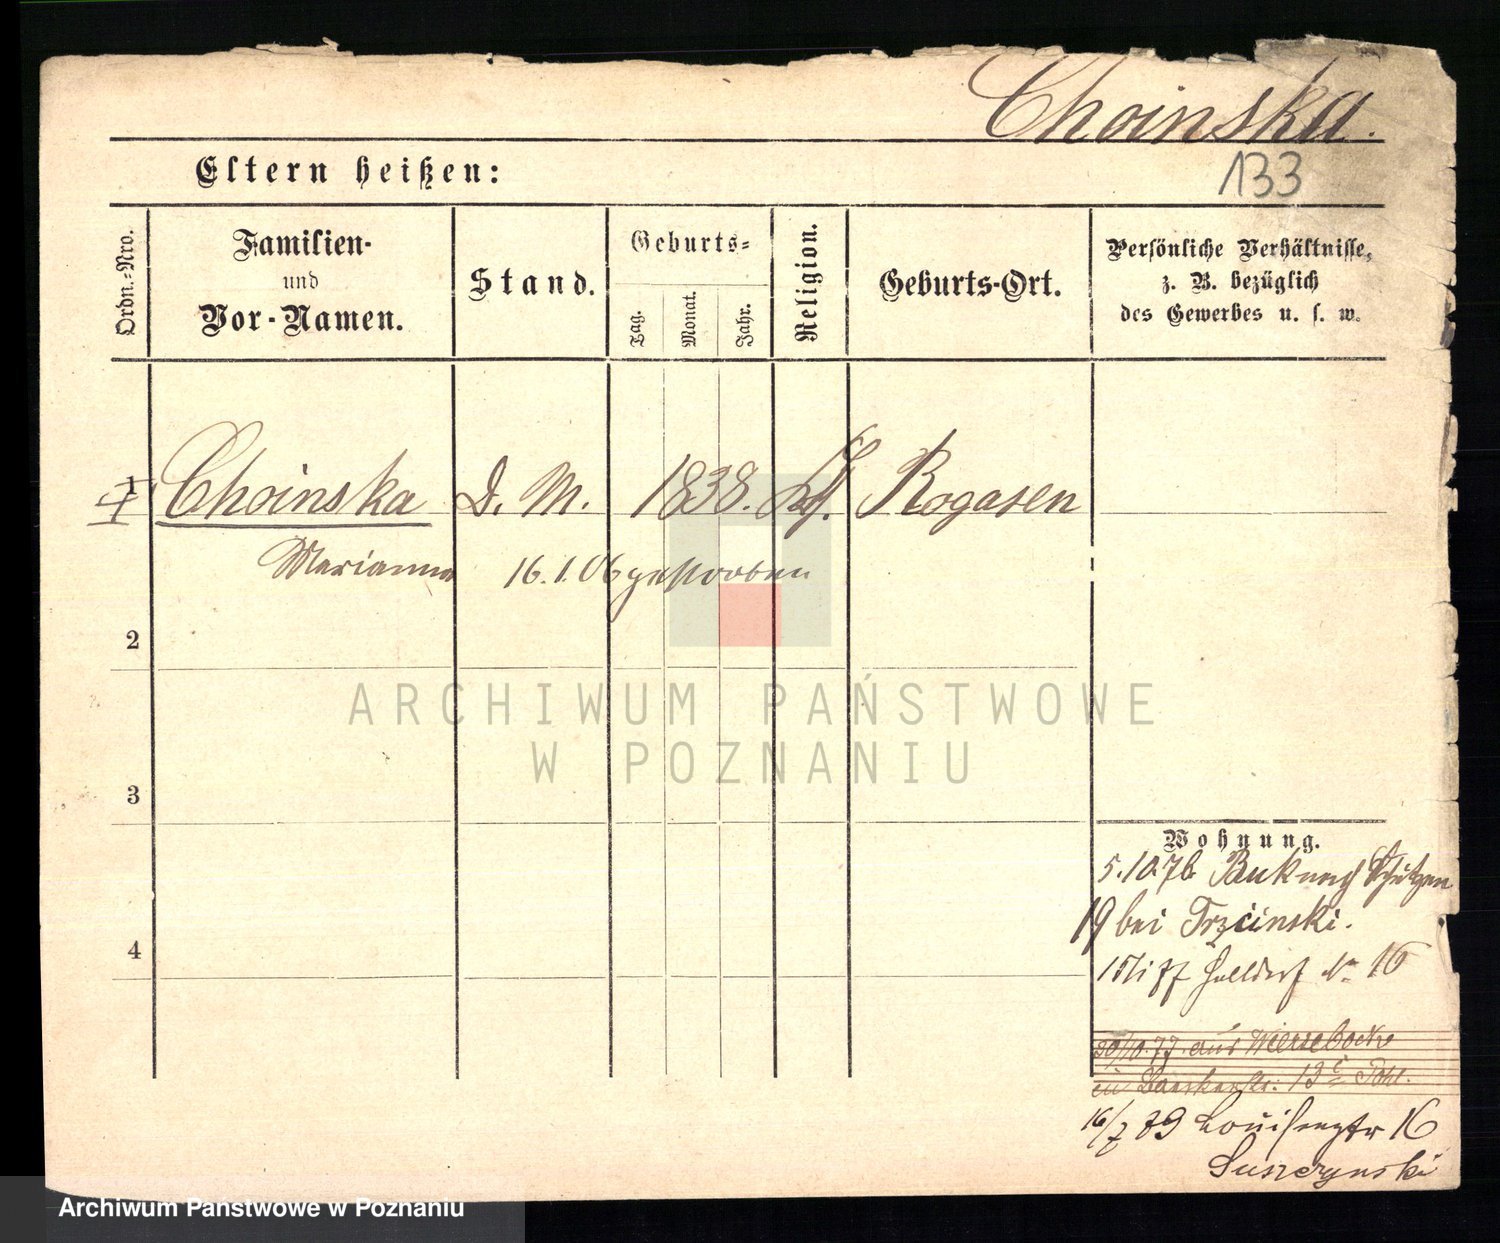 Choinska.
133
Eltern heißen:
Ordn.-Nro.
Familien-
und
Vor-Namen.
Stand.
Geburts-
Tag.
Monat.
Jahr.
Religion.
Geburts-Ort.
Persönliche Verhältnisse,
z. B. bezüglich
des Gewerbes u. s. w.
1 Choinska D. M. 1838. Rogasen
Marianna 16.1.06 gestorben
2
3
4
ARCHIWUM PAŃSTWOWE
W POZNANIU
Wohnung.
5.10.76 Buk nach Schützen
19 bei Trzcinski.
77 Halldorf No 16
30/10.77. aus Wiersebocke
in 13c Pohl.
16/7 89 Louisenstr 16
Suszczynski
Archiwum Państwowe w Poznaniu